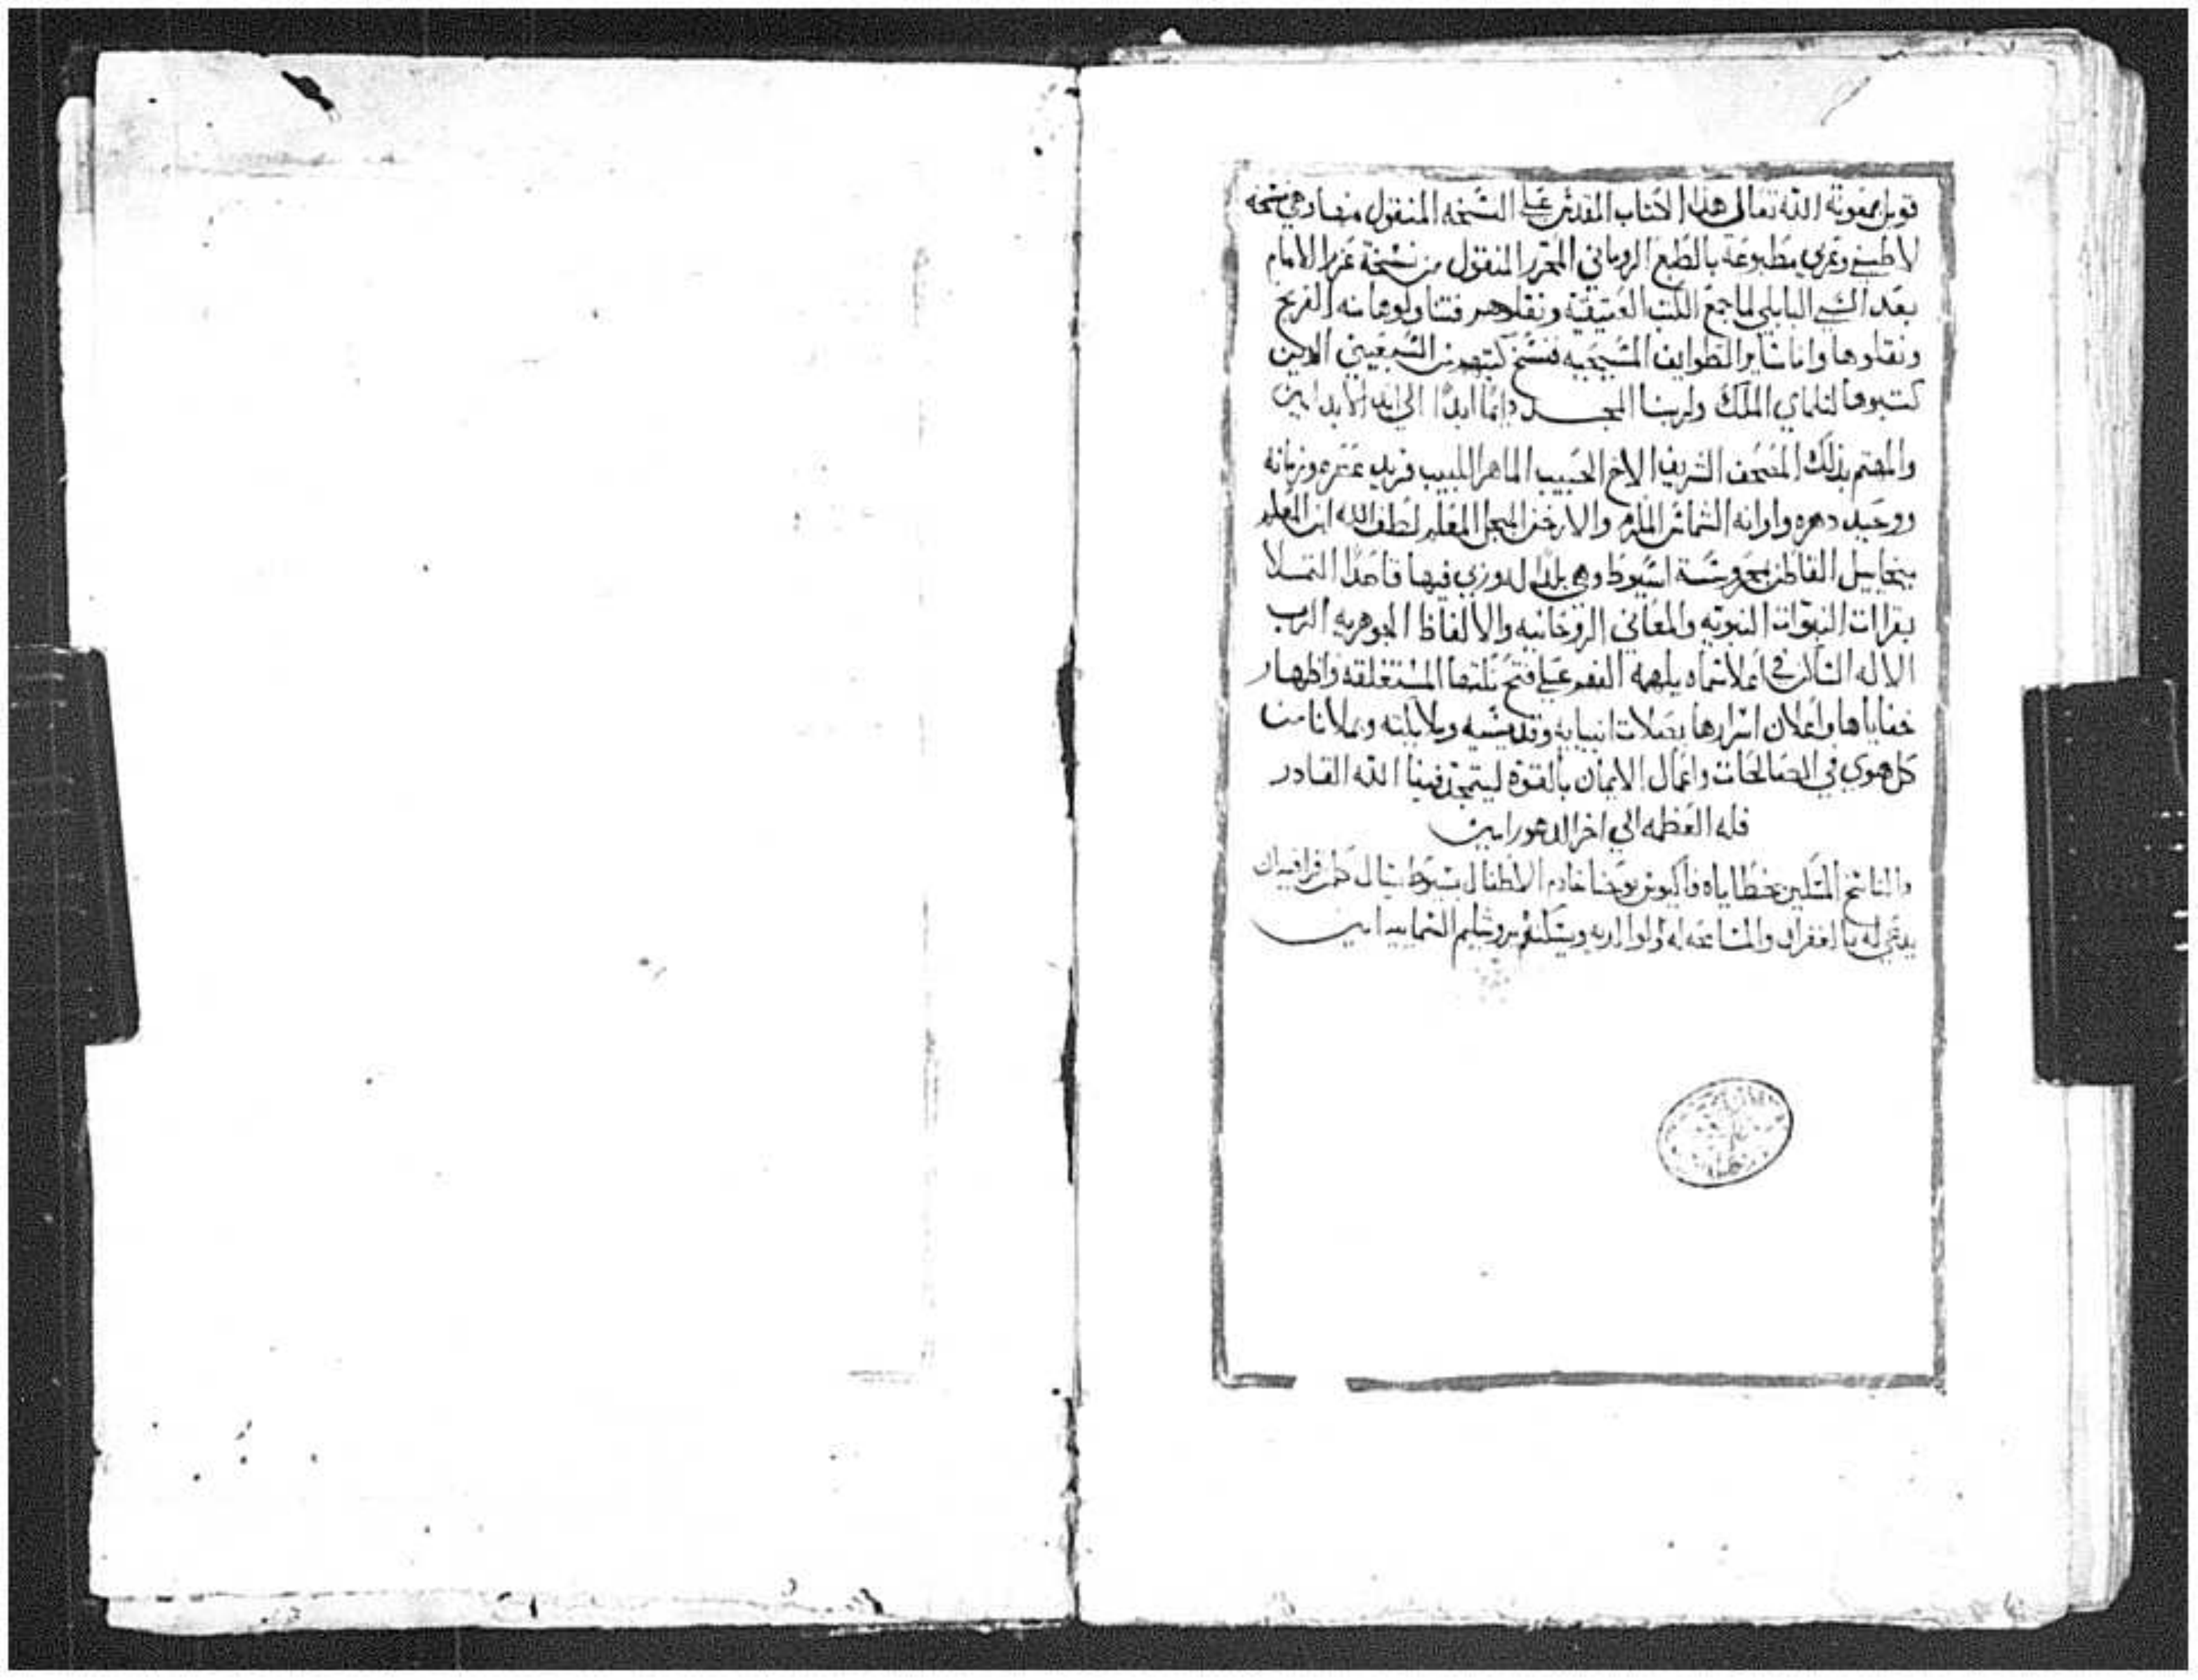 قوبل بمعونة الله تعالى هذا الكتاب المقدس على النسخه المنقول منها وهي نسخه
لاطيني وعربي مطبوعة بالطبع الروماني المحرر المنقول من نسخة عزرا الامام
بعد السبي البابلي لما جمع الكتب العتيقة ونقلوهم فتناولوها منه الفرنج
ونقلوها واما ساير الطوايف المسيحيه فنسخ كتبهم من السبعيني الذين
كتبوها لتلماي الملك ولربنا المجد دايما ابدا الي ابد الابد امين
والمهتم بذلك المصحف الشريف الاخ الحبيب الماهر اللبيب فريد عصره وزمانه
ووحيد دهره واوانه الشماس المكرم والارخن المبجل المعلم لطف الله ابن المعلم
ميخاييل القاطن بمحروسة اسيوط وهي بلد فيها قاصدا التسلا
بقرات النبوات النبوية والمعاني الروحانيه والالفاظ الجوهريه الرب
الاله الساكن في اعلا سماه يلهمه الفهم على فتح المستغلقه واظهار
خفاياها واعلان اسرارها بصلات انبيايه وقديسيه وملايكته وعملانا من
كل هوي في الصالحات واعمال الايمان بالقوة ليتمجد فينا الله القادر
فله العظمه الي اخر الدهور امين
والناسخ المسكين بخطاياه يوحنا خادم الاطفال بسيوط يسال كلمن قرا فيه ان
يدعي له بالغفران والمسامحه له ولوالديه ويسكنهم يروشليم السماييه امين